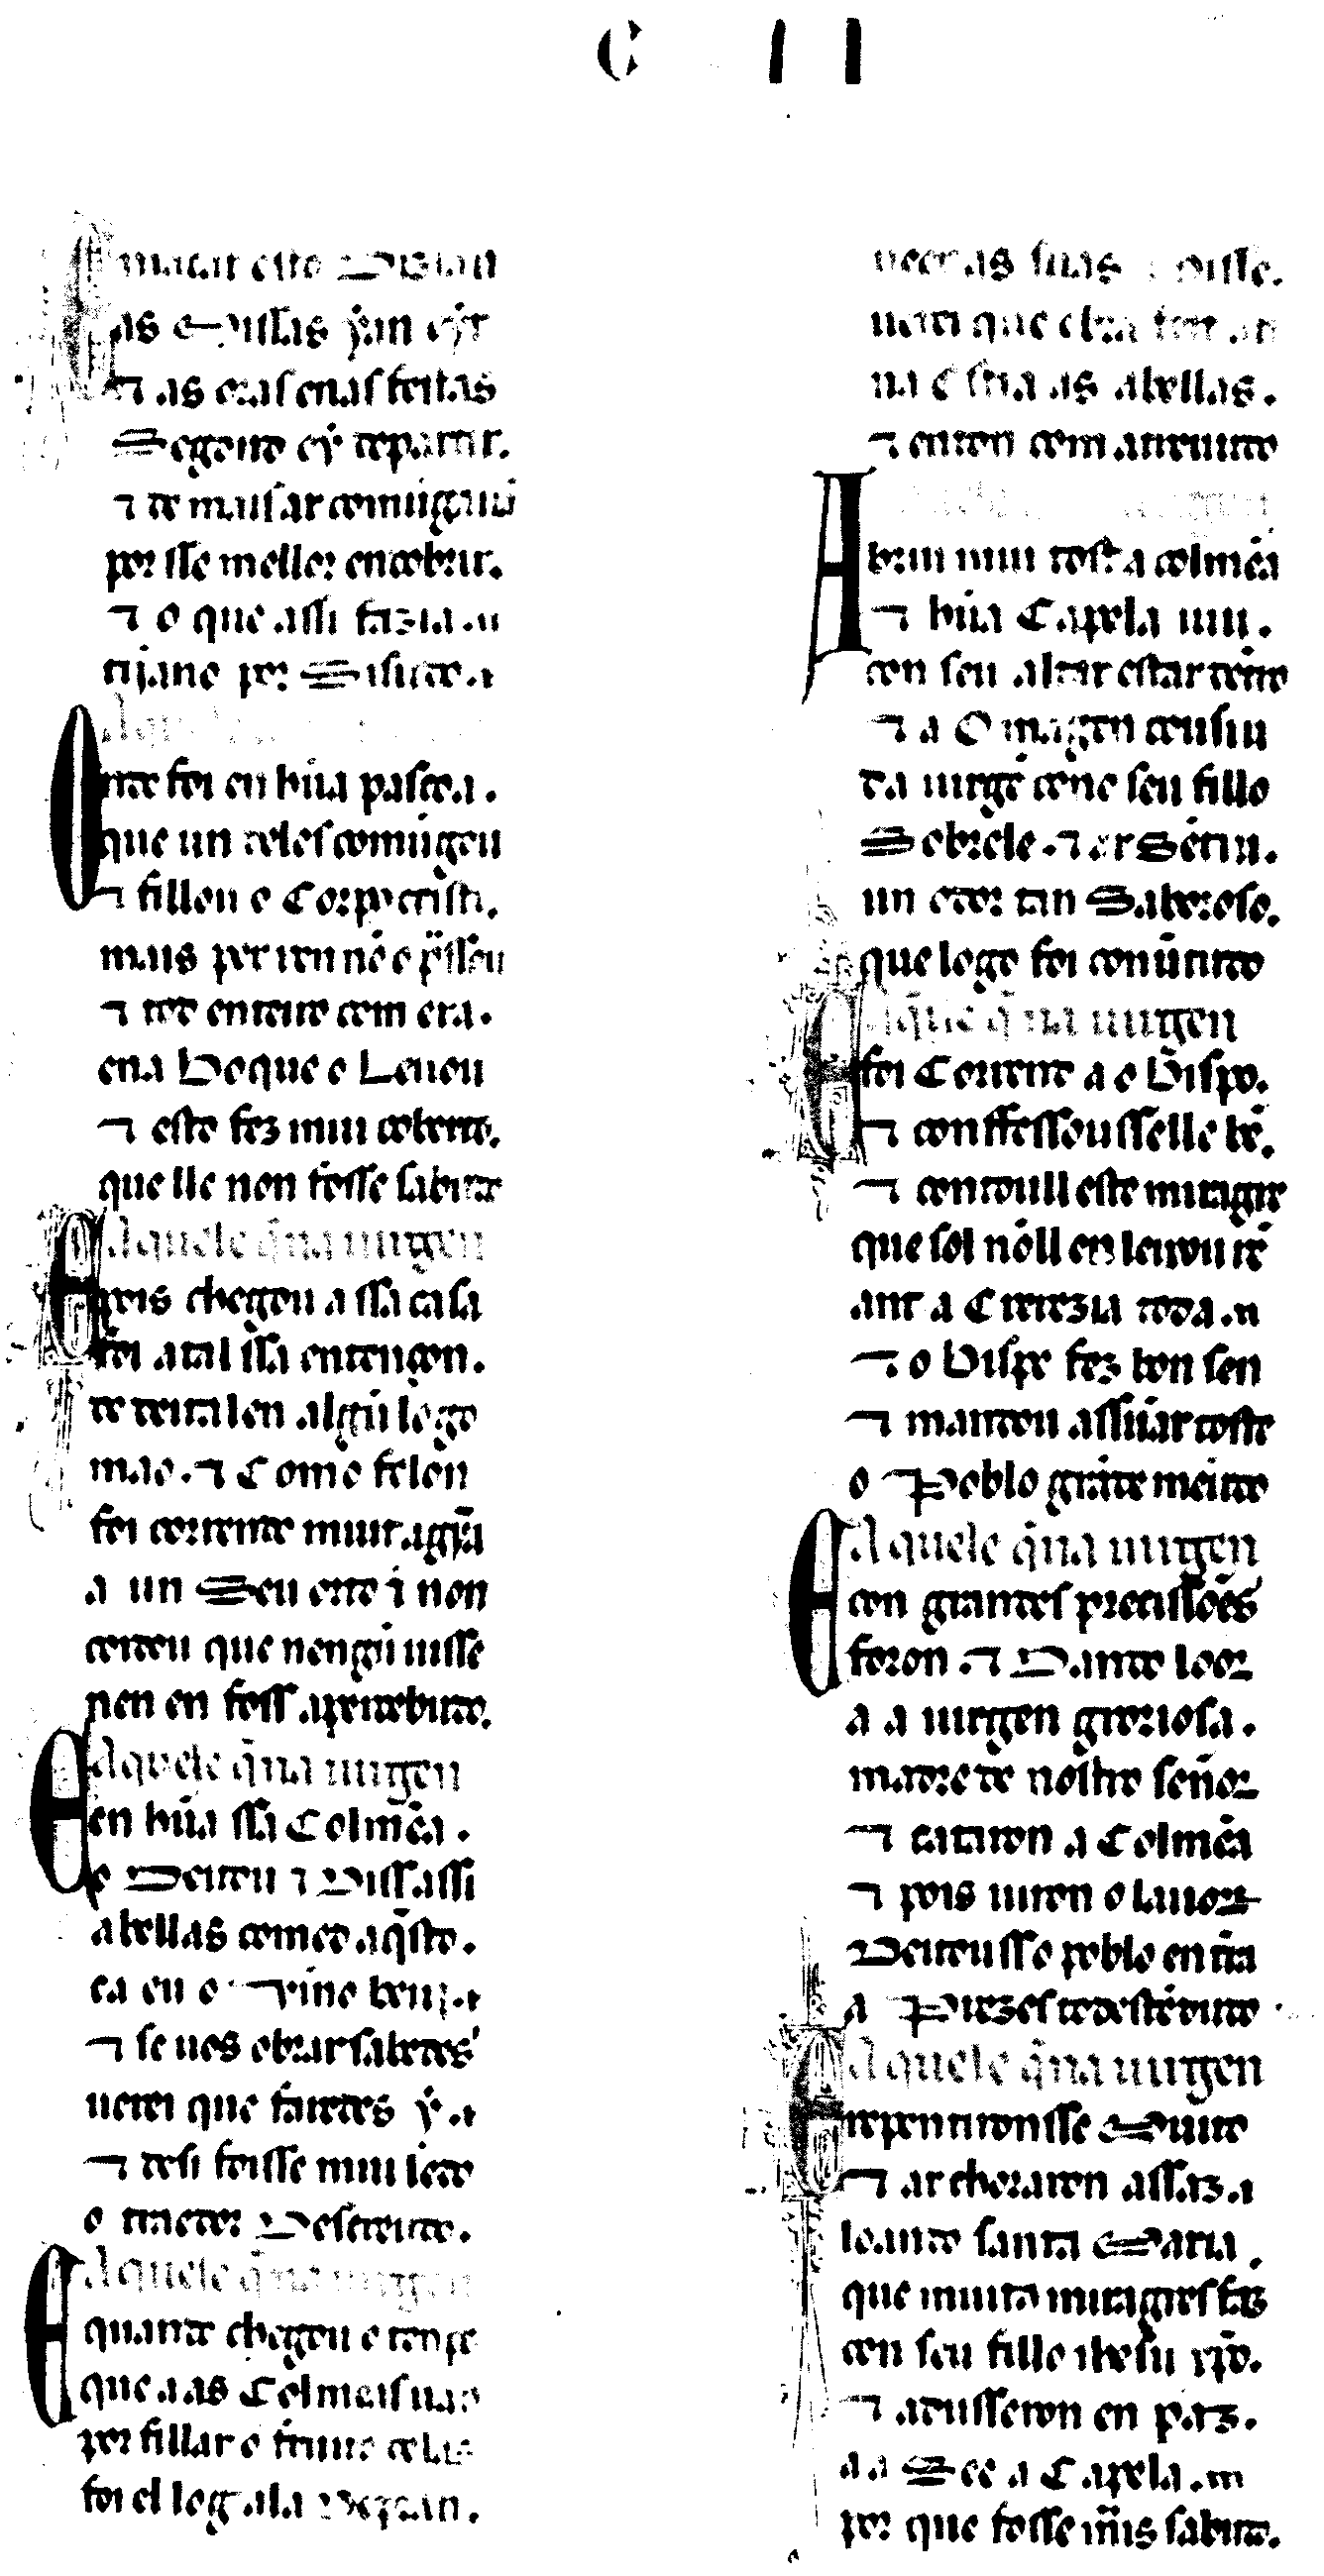 C II
E mataར esto Dizian
as Missas ÿ an oÿr
⁊ as oras enas feitas
Segondo oÿ departir.
⁊ de mais ar comũgauã
por sse mellor encobrir.
⁊ o que assi fazia. u
dijano por Sisudo. ⁊
Aquele
Onde foi en hũa pascoa.
que un deles comũgou
⁊ fillou o Corpo cristi.
mais per ren nõ o passou
⁊ tod enteiro com era.
ena Boque o Leuou
⁊ esto fez mui coberto.
que lle non fosse sabudo
Aquele q̃ na uirgen
E pois chegou a ssa casa
foi a tal ssa entençon.
de deita len algũ logo
mao. ⁊ Como felon
foi correndo muit agỹa
a un Seu orto i non
cuidou que nengũ uisse
nen en foss aperçebudo.
Aquele q̃ na uirgen
E en hũa ssa Colmẽa.
o Deitou ⁊ Diss assi
abellas comed aq̃sto.
ca eu o vino beui. ⁊
⁊ se uos obrar sabedes
uerei que faredes ÿ. ⁊
⁊ desi foisse mui ledo
o traedor Descreudo.
Aquele q̃ na uirgen
E quando chegou o tenpo
que aas Colmẽas uan
por fillar o fruito delas
foi el log ala De pran.
ueer as suas ⁊ Disse.
uerei que obra feit an
na ostia as abellas.
⁊ enton com atreuudo
uirgen
Abriu mui tost a colmẽa
⁊ hũa Capela uiu.
con seu altar estar dentro
⁊ a Omagen cousiu
da uirgẽ cono seu fillo
Sobrele. ⁊ ar Sentiu.
un odor tan Saboroso.
que logo foi conuertudo
Aque q̃ na uirgen
E foi Corrend a o Bispo.
⁊ confessousselle bẽ.
⁊ contoull este miragre
que sol nõll en leixou rẽ
ant a Crerezia toda. u
⁊ o Bispo fez bon sen
⁊ mandou assũar tosto
o Poblo grãde meudo
Aquele q̃ na uirgen
E con grandes precissões
foron. ⁊ Dando loor
a a uirgen groriosa.
madre de nostro señor
⁊ cataron a Colmẽa
⁊ pois uiron o lauor
Deitousso poblo en tĩra
a Prezes todestẽdudo
Aquele q̃ na uirgen
E repentironsse Muito
⁊ ar choraron assaz. ⁊
loando santa Maria.
que muitos miragres faz
con seu fillo ihesu xp̃o.
⁊ adusseron en paz.
a a See a Capela. en
por que fosse mais sabudo.